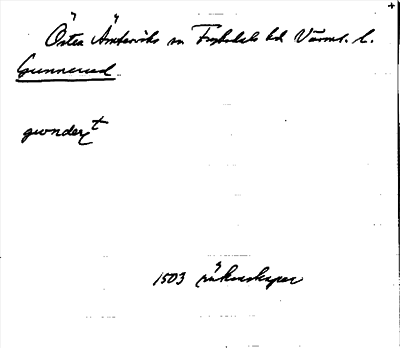 Östra Ämtervik sn Fryksdals hd Värml. l.
Gunnerud
gwndert
1503 räkenskaper